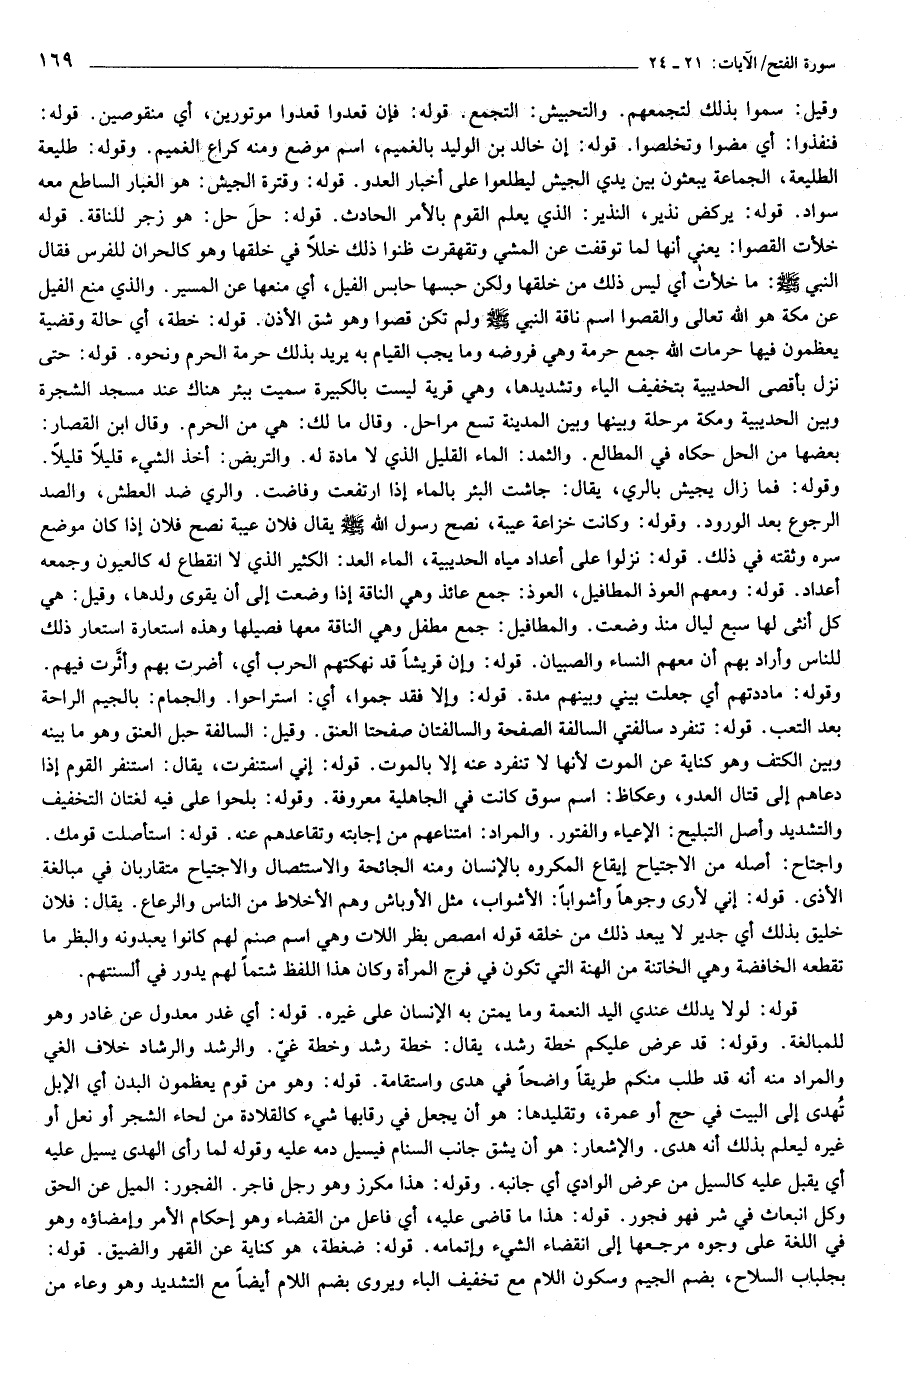 سورة الفتح/ الآيات: ٢١ ـ ٢٤ ١٦٩
وقيل: سموا بذلك لتجمعهم. والتحبيش: التجمع. قوله: فإن قعدوا قعدوا موتورين، أي منقوصين. قوله:
فنفذوا: أي مضوا وتخلصوا. قوله: إن خالد بن الوليد بالغميم، اسم موضع ومنه كراع الغميم. وقوله: طليعة
الطليعة، الجماعة يبعثون بين يدي الجيش ليطلعوا على أخبار العدو. قوله: وقترة الجيش: هو الغبار الساطع معه
سواد. قوله: يركض نذير، النذير: الذي يعلم القوم بالأمر الحادث. قوله: حلَ حل: هو زجر للناقة. قوله
خلأت القصوا: يعني أنها لما توقفت عن المشي وتقهقرت ظنوا ذلك خللاً في خلقها وهو كالحران للفرس فقال
النبي ﷺ: ما خلأت أي ليس ذلك من خلقها ولكن حبسها حابس الفيل، أي منعها عن المسير. والذي منع الفيل
عن مكة هو الله تعالى والقصوا اسم ناقة النبي ﷺ ولم تكن قصوا وهو شق الأذن. قوله: خطة، أي حالة وقضية
يعظمون فيها حرمات الله جمع حرمة وهي فروضه وما يجب القيام به يريد بذلك حرمة الحرم ونحوه. قوله: حتى
نزل بأقصى الحديبية بتخفيف الياء وتشديدها، وهي قرية ليست بالكبيرة سميت ببئر هناك عند مسجد الشجرة
وبين الحديبية ومكة مرحلة وبينها وبين المدينة تسع مراحل. وقال ما لك: هي من الحرم. وقال ابن القصار:
بعضها من الحل حكاه في المطالع. والثمد: الماء القليل الذي لا مادة له. والتربض: أخذ الشيء قليلاً قليلاً.
وقوله: فما زال يجيش بالري، يقال: جاشت البئر بالماء إذا ارتفعت وفاضت. والري ضد العطش، والصد
الرجوع بعد الورود. وقوله: وكانت خزاعة عيبة، نصح رسول الله ﷺ يقال فلان عيبة نصح فلان إذا كان موضع
سره وثقته في ذلك. قوله: نزلوا على أعداد مياه الحديبية، الماء العد: الكثير الذي لا انقطاع له كالعيون وجمعه
أعداد. قوله: ومعهم العوذ المطافيل، العوذ: جمع عائذ وهي الناقة إذا وضعت إلى أن يقوى ولدها، وقيل: هي
كل أنثى لها سبع ليال منذ وضعت. والمطافيل: جمع مطفل وهي الناقة معها فصيلها وهذه استعارة استعار ذلك
للناس وأراد بهم أن معهم النساء والصبيان. قوله: وإن قريشاً قد نهكتهم الحرب أي، أضرت بهم وأثَّرت فيهم.
وقوله: ماددتهم أي جعلت بيني وبينهم مدة. قوله: وإلا فقد جموا، أي: استراحوا. والجمام: بالجيم الراحة
بعد التعب. قوله: تنفرد سالفتي السالفة الصفحة والسالفتان صفحتا العنق. وقيل: السالفة حبل العنق وهو ما بينه
وبين الكتف وهو كناية عن الموت لأنها لا تنفرد عنه إلا بالموت. قوله: إني استنفرت، يقال: استنفر القوم إذا
دعاهم إلى قتال العدو، وعكاظ: اسم سوق كانت في الجاهلية معروفة. وقوله: بلحوا على فيه لغتان التخفيف
والتشديد وأصل التبليح: الإعياء والفتور. والمراد: امتناعهم من إجابته وتقاعدهم عنه. قوله: استأصلت قومك.
واجتاح: أصله من الاجتياح إيقاع المكروه بالإنسان ومنه الجائحة والاستئصال والاجتياح متقاربان في مبالغة
الأذى. قوله: إني لأرى وجوهاً وأشواباً: الأشواب، مثل الأوباش وهم الأخلاط من الناس والرعاع. يقال: فلان
خليق بذلك أي جدير لا يبعد ذلك من خلقه قوله امصص بظر اللات وهي اسم صنم لهم كانوا يعبدونه والبظر ما
تقطعه الخافضة وهي الخاتنة من الهنة التي تكون في فرج المرأة وكان هذا اللفظ شتماً لهم يدور في ألسنتهم.
قوله: لولا يدلك عندي اليد النعمة وما يمتن به الإنسان على غيره. قوله: أي غدر معدول عن غادر وهو
للمبالغة. وقوله: قد عرض عليكم خطة رشد، يقال: خطة رشد وخطة غيّ. والرشد والرشاد خلاف الغي
والمراد منه أنه قد طلب منكم طريقاً واضحاً في هدى واستقامة. قوله: وهو من قوم يعظمون البدن أي الإبل
تُهدى إلى البيت في حج أو عمرة، وتقليدها: هو أن يجعل في رقابها شيء كالقلادة من لحاء الشجر أو نعل أو
غيره ليعلم بذلك أنه هدى. والإشعار: هو أن يشق جانب السنام فيسيل دمه عليه وقوله لما رأى الهدى يسيل عليه
أي يقبل عليه كالسيل من عرض الوادي أي جانبه. وقوله: هذا مكرز وهو رجل فاجر. الفجور: الميل عن الحق
وكل انبعاث في شر فهو فجور. قوله: هذا ما قاضى عليه، أي فاعل من القضاء وهو إحكام الأمر وإمضاؤه وهو
في اللغة على وجوه مرجعها إلى انقضاء الشيء وإتمامه. قوله: ضغطة، هو كناية عن القهر والضيق. قوله:
بجلباب السلاح، بضم الجيم وسكون اللام مع تخفيف الباء ويروى بضم اللام أيضاً مع التشديد وهو وعاء من